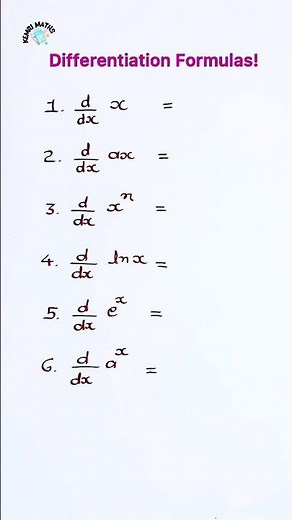 KEMRI MATHS
Differentiation Formulas!
1. d/dx x =
2. d/dx ax =
3. d/dx xⁿ =
4. d/dx ln x =
5. d/dx eˣ =
6. d/dx aˣ =